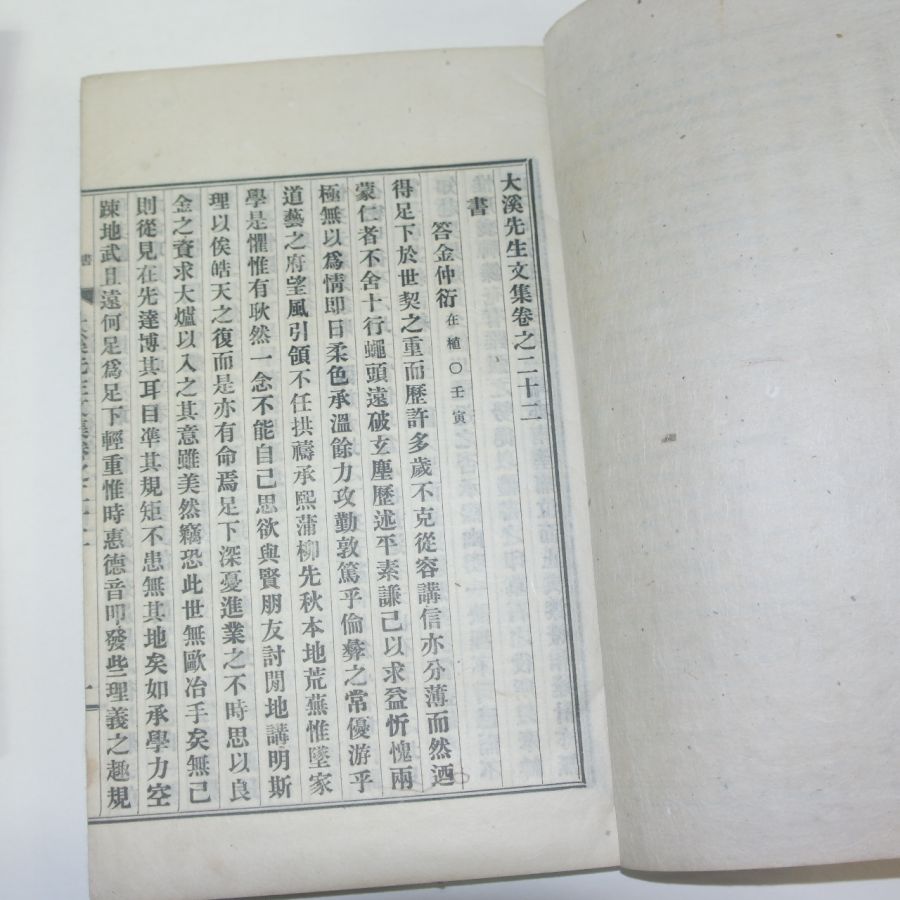 大溪先生文集卷之二十二
書
答金仲衍在植○壬寅
得足下於世契之重而歷許多歲不克從容講信亦分薄而然迺
蒙仁者不舍十行蠅頭遠破玄塵歷述平素謙己以求益忻愧兩
極無以爲情即日柔色承溫餘力攻勤敦篤乎倫彝之常優游乎
道藝之府望風引領不任拱禱承熙蒲柳先秋本地荒蕪惟墜家
學是懼惟有耿然一念不能自已思欲與賢朋友討閒地講明斯
理以俟皓天之復而是亦有命焉足下深憂進業之不時思以良
金之資求大爐以入之其意雖美然竊恐此世無歐冶手矣無已
則從見在先達博其耳目準其規矩不患無其地矣如承學力空
踈地武且遠何足爲足下輕重惟時惠德音叩發些理義之趣規